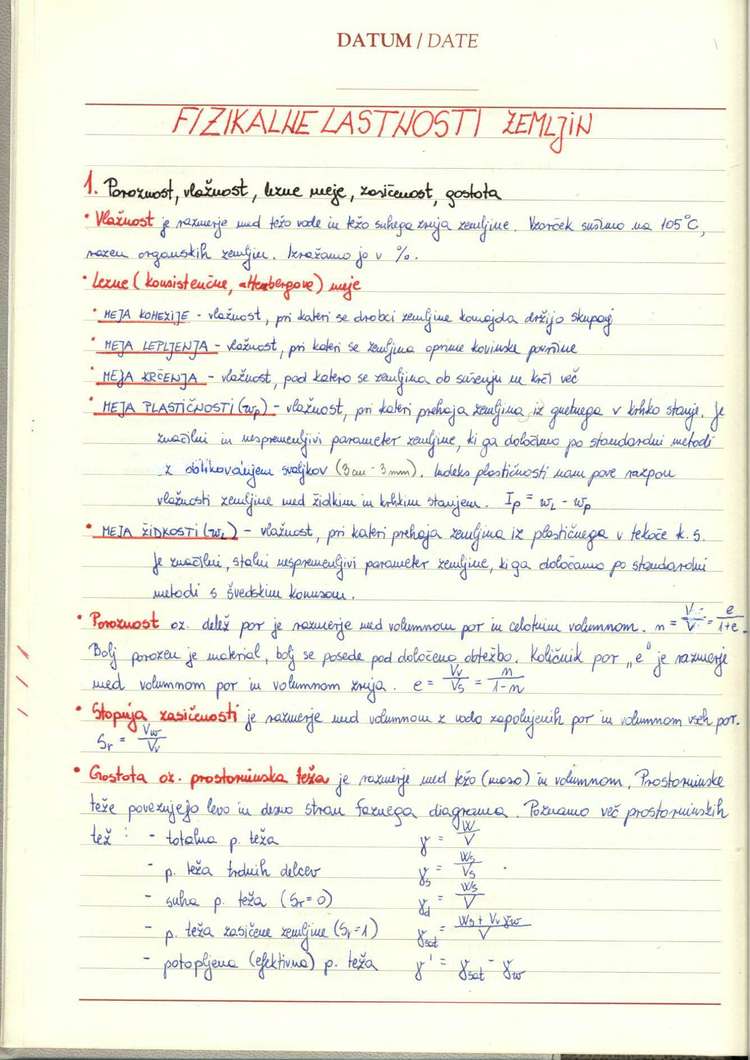 DATUM / DATE
FIZIKALNE LASTNOSTI ZEMLJIN
1. Poroznost, vlažnost, lezne meje, zasičenost, gostota
• Vlažnost je razmerje med težo vode in težo suhega zrnja zemljine. Vzorček sušimo na 105°C,
razen organskih zemljin. Izražamo jo v %.
• Lezne (konsistenčne, Atterbergove) meje
• MEJA KOHEZIJE - vlažnost, pri kateri se drobci zemljine komajda držijo skupaj
• MEJA LEPLJENJA - vlažnost, pri kateri se zemljina oprime kovinske površine
• MEJA KRČENJA - vlažnost, pod katero se zemljina ob sušenju ne krči več
• MEJA PLASTIČNOSTI (wp) - vlažnost, pri kateri prehaja zemljina iz gnetnega v krhko stanje. Je
značilni in nespremenljivi parameter zemljine, ki ga določimo po standardni metodi
z oblikovanjem svaljkov (3cm - 3mm). Indeks plastičnosti nam pove razpon
vlažnosti zemljine med židkim in krhkim stanjem. Ip = wL - wp
• MEJA ŽIDKOSTI (wL) - vlažnost, pri kateri prehaja zemljina iz plastičnega v tekoče k. s.
Je značilni, stalni nespremenljivi parameter zemljine, ki ga določamo po standardni
metodi s švedskim konusom.
• Poroznost oz. delež por je razmerje med volumnom por in celotnim volumnom. n = Vv/V = e/1+e.
Bolj porozen je material, bolj se posede pod določeno obtežbo. Količnik por „e" je razmerje
med volumnom por in volumnom zrnja. e = Vv/Vs = n/1-n
• Stopnja zasičenosti je razmerje med volumnom z vodo zapolnjenih por in volumnom vseh por.
Sr = Vw/Vv
• Gostota oz. prostorninska teža je razmerje med težo (maso) in volumnom. Prostorninske
teže povezujejo levo in desno stran faznega diagrama. Poznamo več prostorninskih
tež: - totalna p. teža γ = W/V
- p. teža trdnih delcev γs = Ws/Vs
- suha p. teža (Sr=0) γd = Ws/V
- p. teža zasičene zemljine (Sr=1) γsat = Ws + Vv γw/V
- potopljena (efektivna) p. teža γ' = γsat - γw